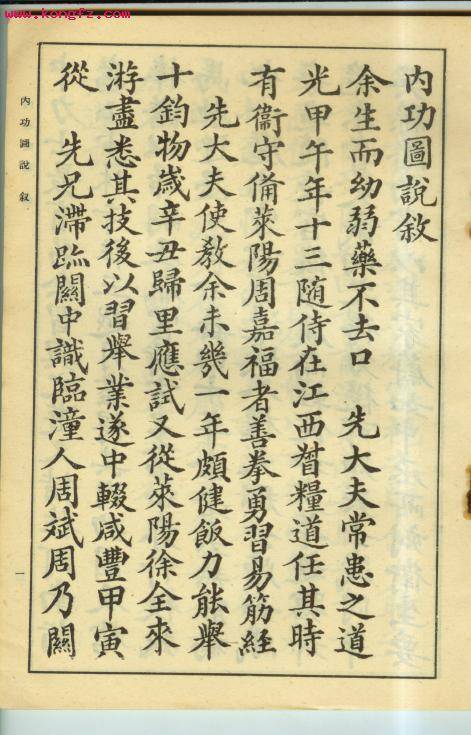 www.kongfz.com
內功圖說敘
余生而幼弱藥不去口　先大夫常患之道
光甲午年十三隨侍在江西督糧道任其時
有衞守備萊陽周嘉福者善拳勇習易筋經
先大夫使敎余未幾一年頗健飯力能舉
十鈞物歲辛丑歸里應試又從萊陽徐全來
游盡悉其技後以習舉業遂中輟咸豐甲寅
從　先兄滯跡關中識臨潼人周斌周乃關
內功圖說　敘
一